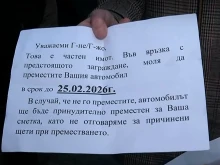 Уважаеми Г-не/Г-жо,
Това е частен имот. Във връзка с
предстоящото заграждане, моля да
преместите Вашия автомобил
в срок до 25.02.2026г.
В случай, че не го преместите, автомобилът
ще бъде принудително преместен за Ваша
сметка, като не отговаряме за причинени
щети при преместването.